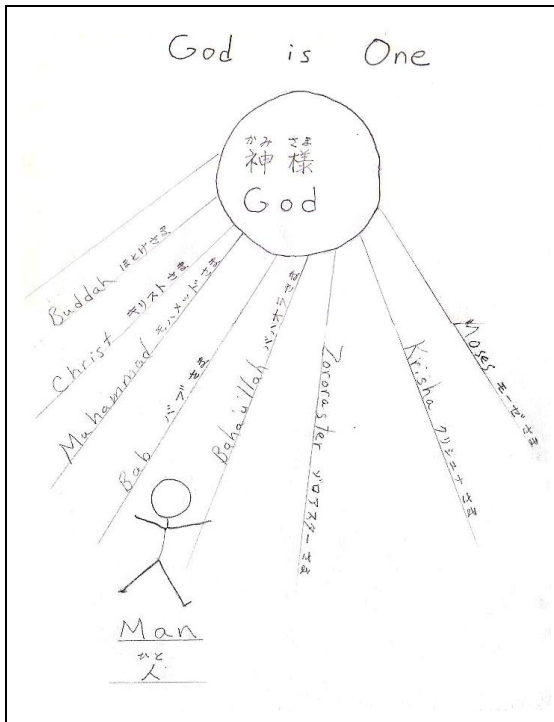 God is One
かみ さま
神様
God
Buddah ほとけさま
Christ キリストさま
Muhammad モハメッドさま
Bab バブさま
Baha'u'llah バハオラさま
Zororaster ゾロアスターさま
Krisha クリシュナさま
Moses モーゼさま
Man
ひと
人